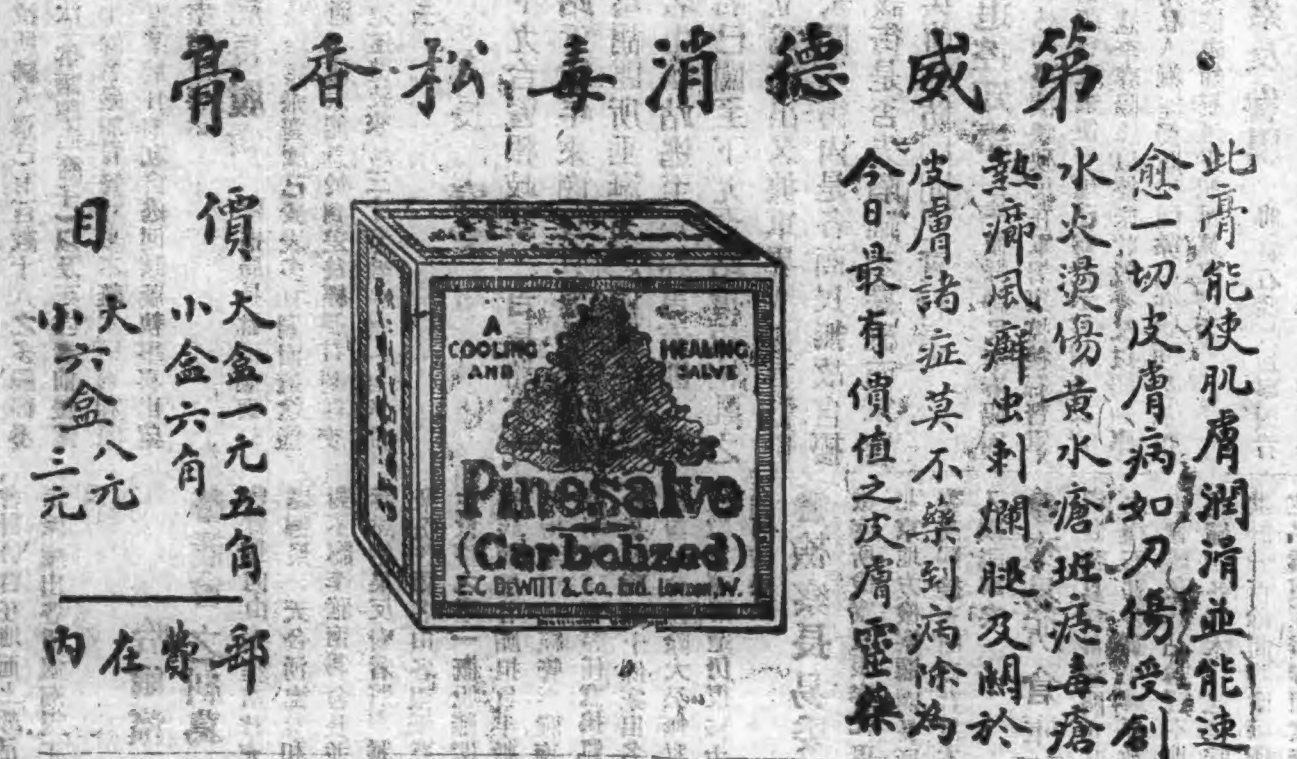 第威德消毒松香膏
此膏能使肌膚潤滑並能速
愈一切皮膚病如刀傷受創
水火燙傷黃水瘡斑痣毒瘡
熱癤風癬虫刺爛腿及關於
皮膚諸症莫不藥到病除為
今日最有價值之皮膚靈藥
A
COOLING
AND
HEALING
SALVE
Pinesalve
(Carbolized)
E.C. DEWITT & Co. Ltd. London, W.
價目
大盒一元五角
小盒六角
大六盒八元
小六盒三元
郵費在內